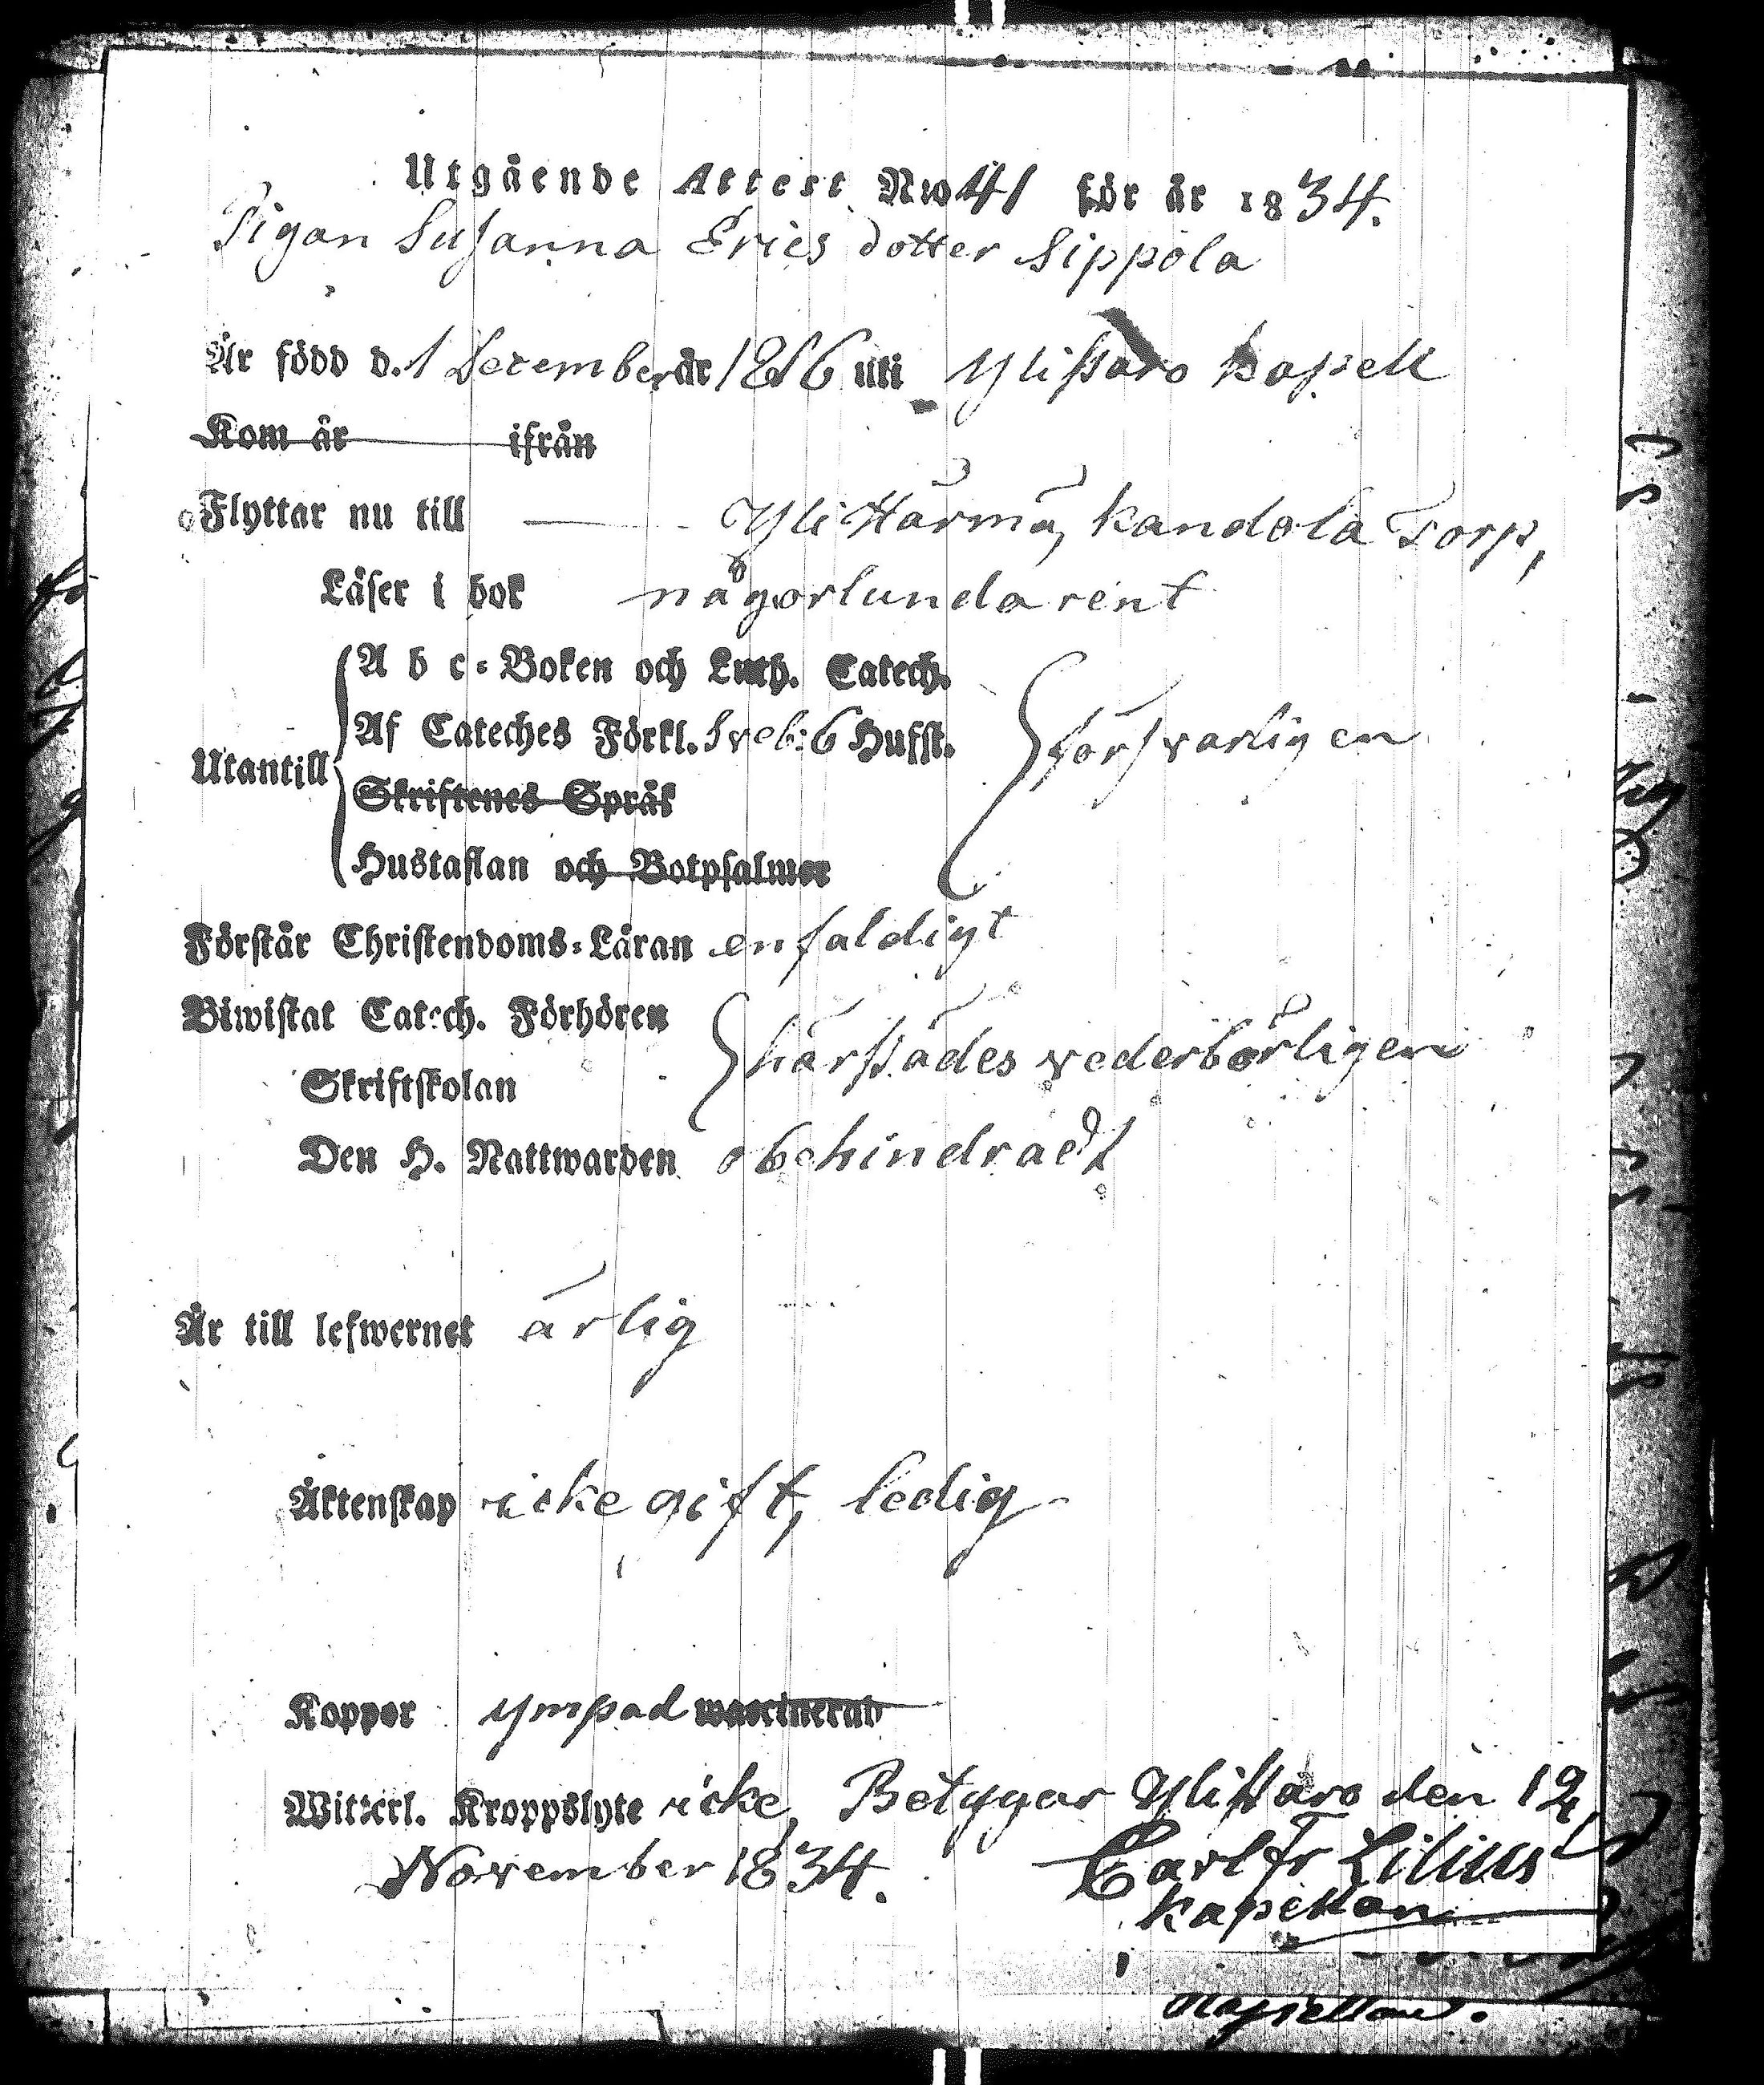 Utgående Attest N:o 41 för år 1834.
Pigan Susanna Erics dotter Sippola
Är född d. 1 December år 1816 uti Ylistaro Kapell
Kom år ifrån
Flyttar nu till Yli Härmä, Kandola Torp,
Läser i bok någorlunda rent
A b c-Boken och Luth. Catech.
Af Cateches Förkl. Sveb: 6 Hufst. försvarligen
Utantill
Skriftenes Språk
Hustaflan och Botpsalmer
Förstår Christendoms-Läran enfaldigt
Biwistat Catech. Förhören
härstädes vederbörligen
Skriftskolan
Den H. Nattwarden obehindradt
Är till lefwernet ärlig
Äktenskap icke gift, ledig
Koppor ympad waccinerad
Witterl. Kroppslyte icke, Betygar Ylistaro den 12
November 1834. Carl Fr Lilius
Kapellan
Kapellan.